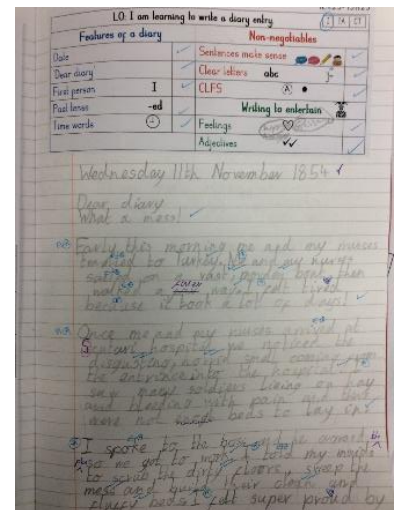 LO: I am learning to write a diary entry
I TA CT
Features of a diary
Non-negotiables
Date
Sentences make sense
Dear diary
Clear letters abc
First person I
CLFS A
Past tense -ed
Writing to entertain
Time words
Feelings
Adjectives
Wednesday 11th November 1854
Dear diary
What a mess!
Early this morning me and my nurses
travelled to Turkey. Me and my nurses
sailed on a vast, boat then
walked a I felt tired
because it took a lot of days!
Once me and my nurses arrived at
Scutari hospital we noticed the
disgusting, smell coming from
the entrance into the hospital. I
saw many soldiers lying on hay
and bleeding with pain and there
were not beds to lay on.
I spoke to the boss and he
so we got to work. I told my nurses
to scrub the dirty floors, sweep the
mess and clean and
beds I felt super proud by